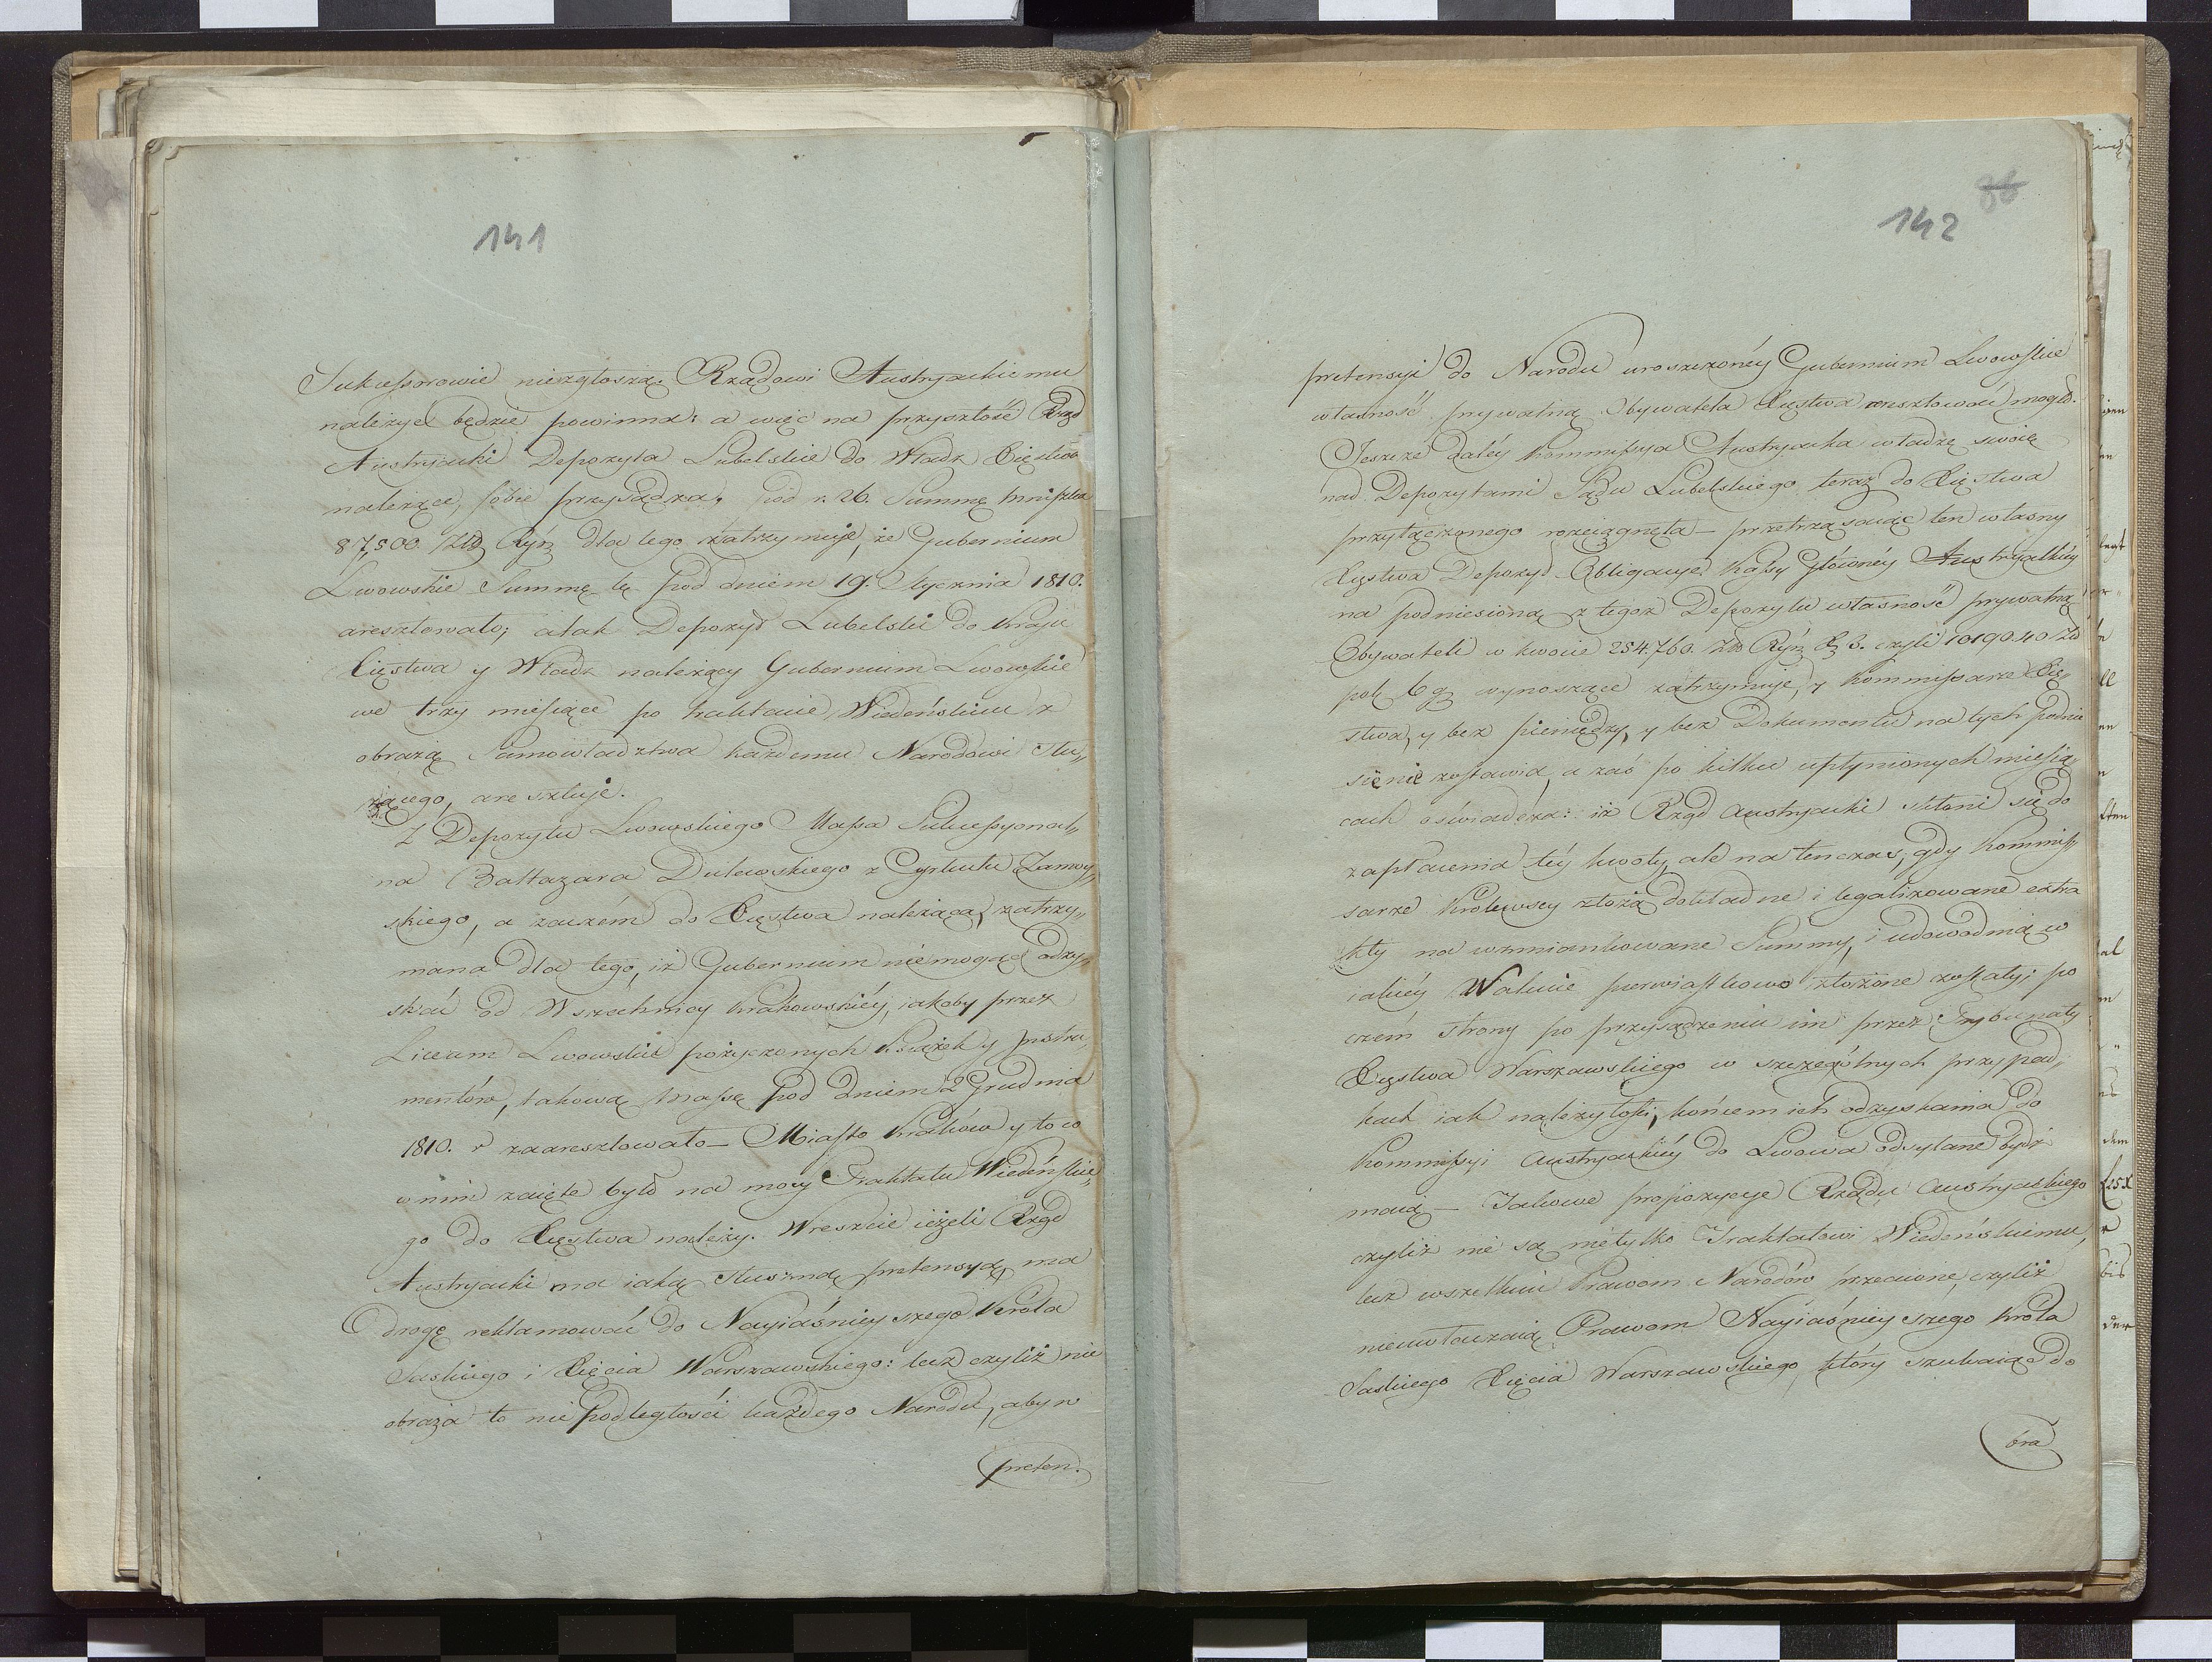 141
Sukcessorowie niezgłoszą. Rządowi Austryackiemu
należyć będzie powinna: a więc na przyszłość Rząd
Austryacki Depozyta Lubelskie do Władz Xięstwa
należące, sobie przysądza, pod n. 26. Summę Mniszka
87,500 Złt Ryń dla tego zatrzymuje, że Gubernium
Lwowskie Summę tę pod dniem 19. Stycznia 1810.
aresztowało; a tak Depozyt Lubelski do Kraju
Xięstwa y Władz należący Gubernium Lwowskie
we trzy miesiące po traktacie Wiedeńskim z
obrazą Samowładztwa każdemu Narodowi słu„
żącego, aresztuje.
Z Depozytu Lwowskiego Massa Sukcessyonal„
na Baltazara Dulewskiego z Cyrkułu Zamoy„
skiego, a zaczém do Xięstwa należąca, zatrzy„
mana dla tego, iż Gubernium niemogąc odzy„
skać od Wszechnicy Krakowskiéy, iakoby przez
Liceum Lwowskie pożyczonych Książek y Jnstru„
mentów, takową Massę pod dniem 2 Grudnia
1810. r zaaresztowało – Miasto Kraków y to co
w nim zaięte było na mocy Traktatu Wiedeńskie„
go do Xięstwa należy. Wreszcie ieżeli Rząd
Austryacki ma iaką słuszną pretensyą, ma
drogę reklamować do Nayiaśnieyszego Króla
Saskiego i Xięcia Warszawskiego: lecz czyliż nie
obraża to niepodległości każdego Narodu, aby w
preten.
86
142
pretensyi do Narodu uroszczonéy Gubernium Lwowskie
własność prywatną Obywatela Xięstwa aresztować mogło.
Jeszcze daléy Kommissya Austryacka władzę swoię
nad Depozytami Sądu Lubelskiego teraz do Xięstwa
przyłączonego rozciągnęła – przetrząsaiąc ten własny
Xięstwa Depozyt Obligacye Kassy Głównéy Austryackiéy
na podniesioną z tegoż Depozytu własność prywatną
Obywateli w kwocie 254.760. Zło Ryń X 3. czyli 1019040 Zło
pol 6 g wynoszące zatrzymuje, y Kommissarze Xię„
stwa, y bez pieniędzy, y bez Dokumentu na tych podnie
sienie zostawia, a zaś po kilku upłynionych miesią„
cach oświadcza: iż Rząd Austryacki skłoni się do
zapłacenia téy kwoty, ale na tenczas, gdy Kommis„
sarze Królewscy złożą dokładne i legalizowane extra
kty na wzmiankowane Summy, i udowodnią w
iakiéy Walucie pierwiastkowo złożone zostały; po
czém strony po przysądzeniu im przez Trybunały
Xięstwa Warszawskiego w szczególnych przypad„
kach iak należytości, końcem ich odzyskania do
Kommissyi Austryackiéy do Lwowa odsyłane bydź
maią – Jakowe propozycye Rządu Austryackiego
czyliż nie są nietylko Traktatowi Wiedeńskiemu,
lecz wszelkim Prawom Narodów przeciwne, czyliż
nieuwłaczaią Prawom Nayiaśnieyszego Króla
Saskiego Xięcia Warszawskiego, który szukaiąc do
bra